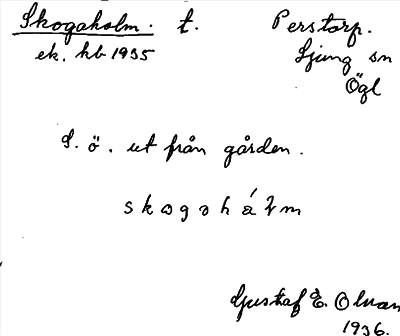 Skogaholm. t. Perstorp.
ek. kb 1935 Ljung sn
Ögl
S. ö. ut från gården.
skogəhålm
Gustaf E. Olvan
1936.